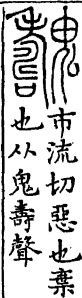 魗
市流切惡也棄
也从鬼壽聲